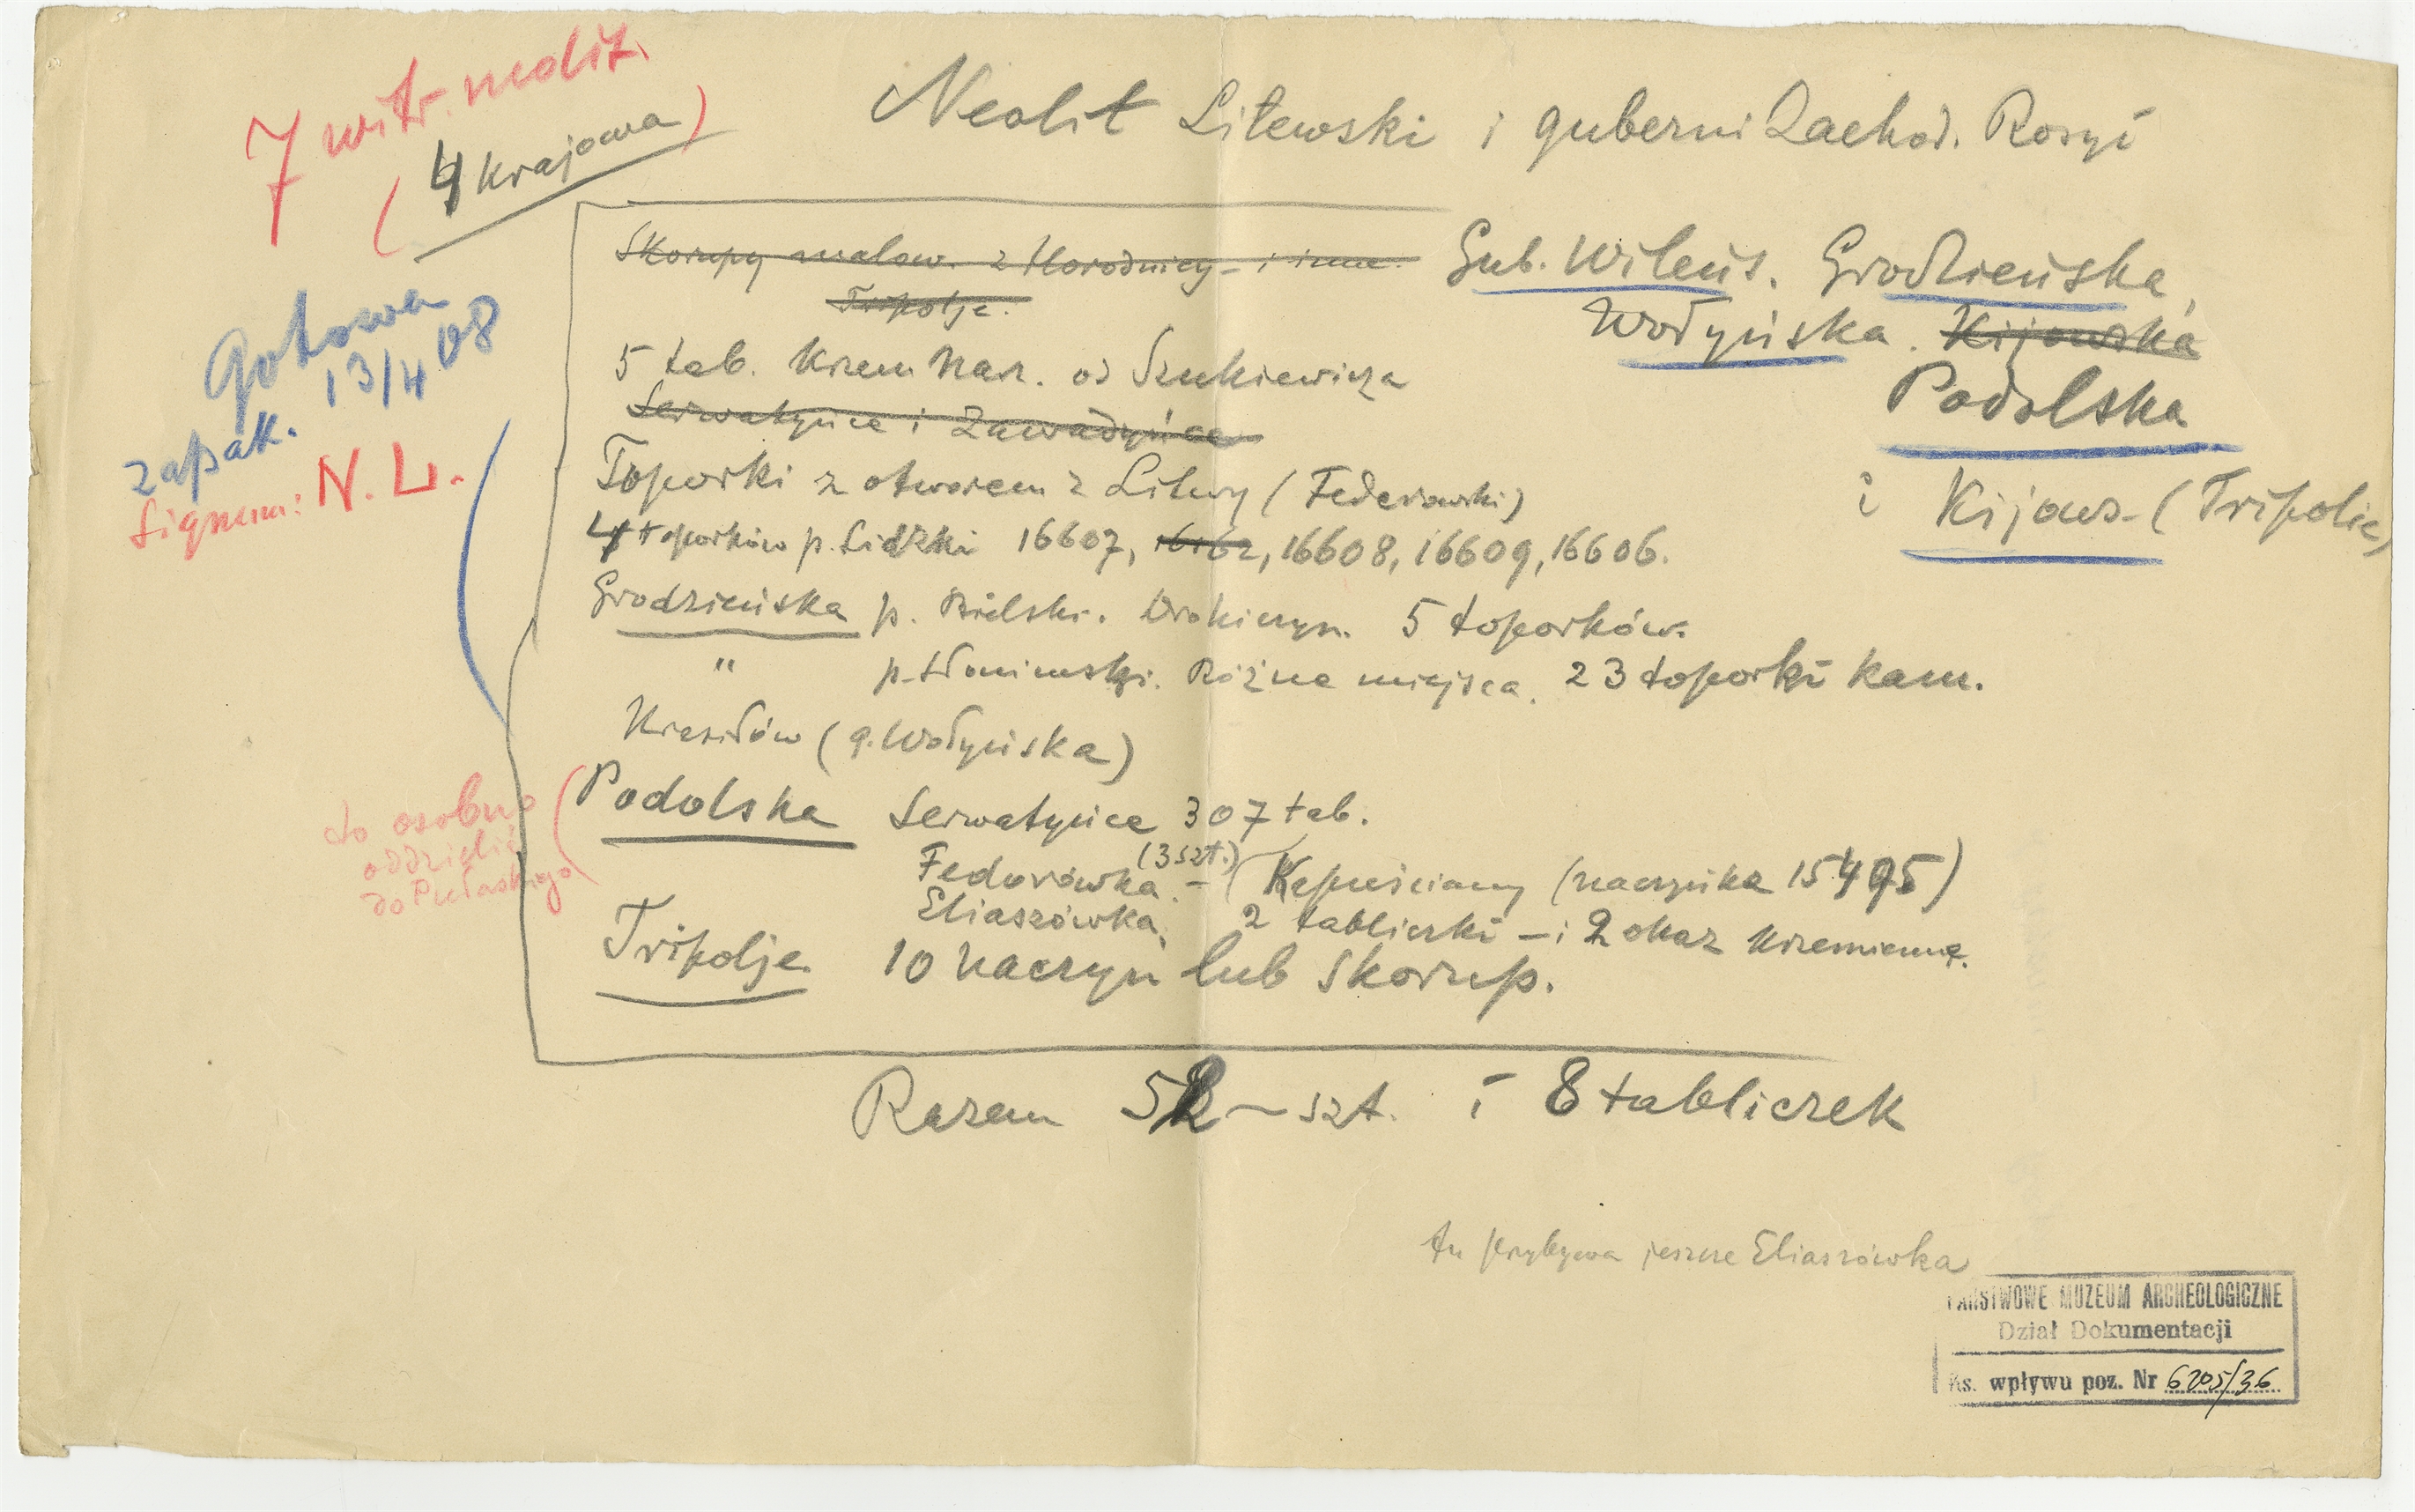 7 witr. neolit.
(4 Krajowa)
Neolit Litewski i guberni Zachod. Rosyi
Skorupy malow. z Horodnicy - i inne.
Tripolje.
Gub. Wileńs. Grodzieńska,
Wołyńska. Kijowska
Podolska
i Kijows. (Tripolie)
Gotowa
13/4 08
zapak.
Signum: N. L.
5 tab. Krzem Narz. od Szukiewicza
Serwatyńce i Zawadyńce
Toporki z otworem z Litwy (Federowski)
4 toporków p. Lidzki 16607, 16162, 16608, 16609, 16606.
Grodzieńska p. Bielski. Drohiczyn. 5 toporków.
" p. Słonimski. Różne miejsca. 23 toporki kam.
(g. Wołyńska)
Podolska Serwatyńce 307 tab.
(3 szt.)
Fedorówka. - (naczynka 15495)
Eliaszówka, 2 tabliczki - i 2 okaz krzemienne.
Tripolje 10 naczyń lub skorup.
to osobno
oddzielić
do Pułaskiego
Razem 52 ~ szt. i 8 tabliczek
tu przybywa jeszcze Eliaszówka
PAŃSTWOWE MUZEUM ARCHEOLOGICZNE
Dział Dokumentacji
Ks. wpływu poz. Nr 6205/36